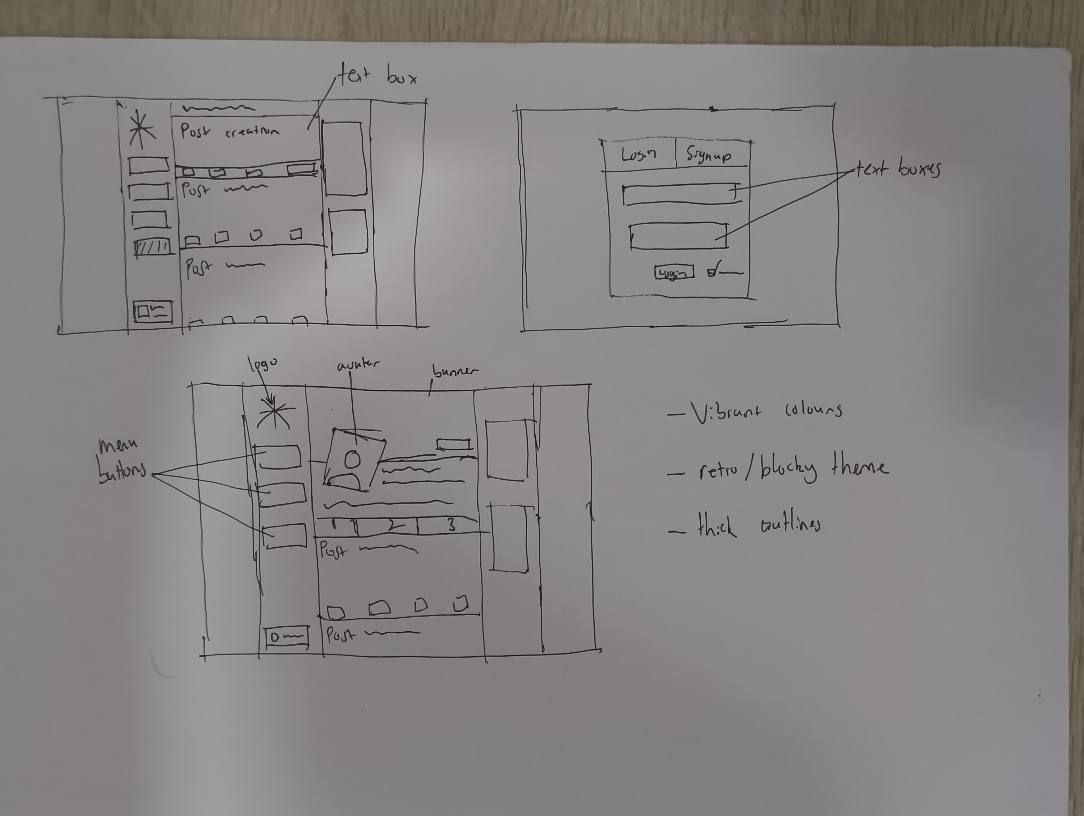 text box
Post creation
Post
Post
Login
Signup
text boxes
Login
logo
avatar
banner
menu
buttons
1 2 3
Post
Post
– Vibrant colours
– retro/blocky theme
– thick outlines